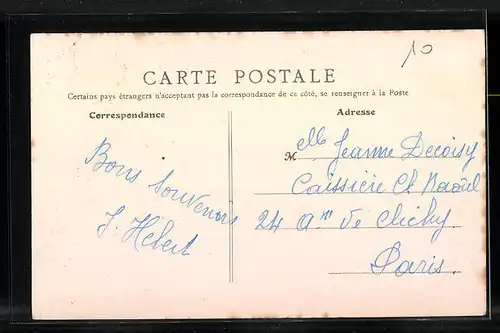 10
CARTE POSTALE
Certains pays étrangers n'acceptant pas la correspondance de ce côté, se renseigner à la Poste
Correspondance
Adresse
Bons souvenirs
J. Hebert
Melle Jeanne Decoisy
Caissière Ch. Raoul
24 Av. de Clichy
Paris.